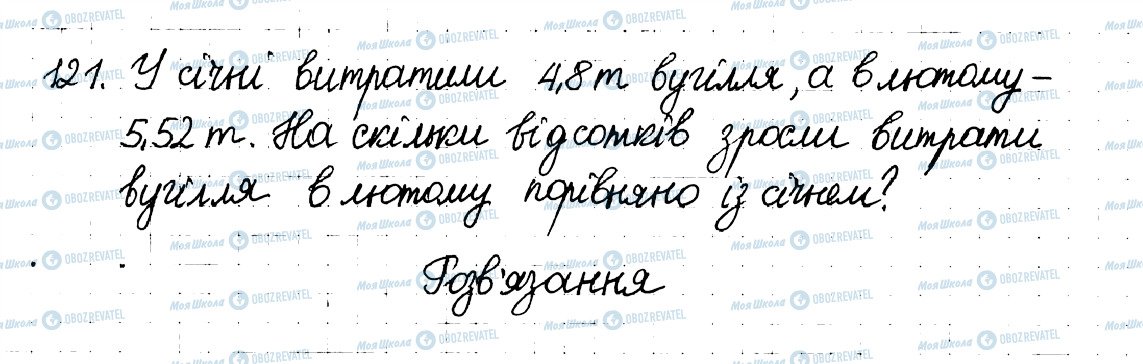 121. У січні витратили 4,8 т вугілля, а в лютому –
5,52 т. На скільки відсотків зросли витрати
вугілля в лютому порівняно із січнем?
Розв'язання